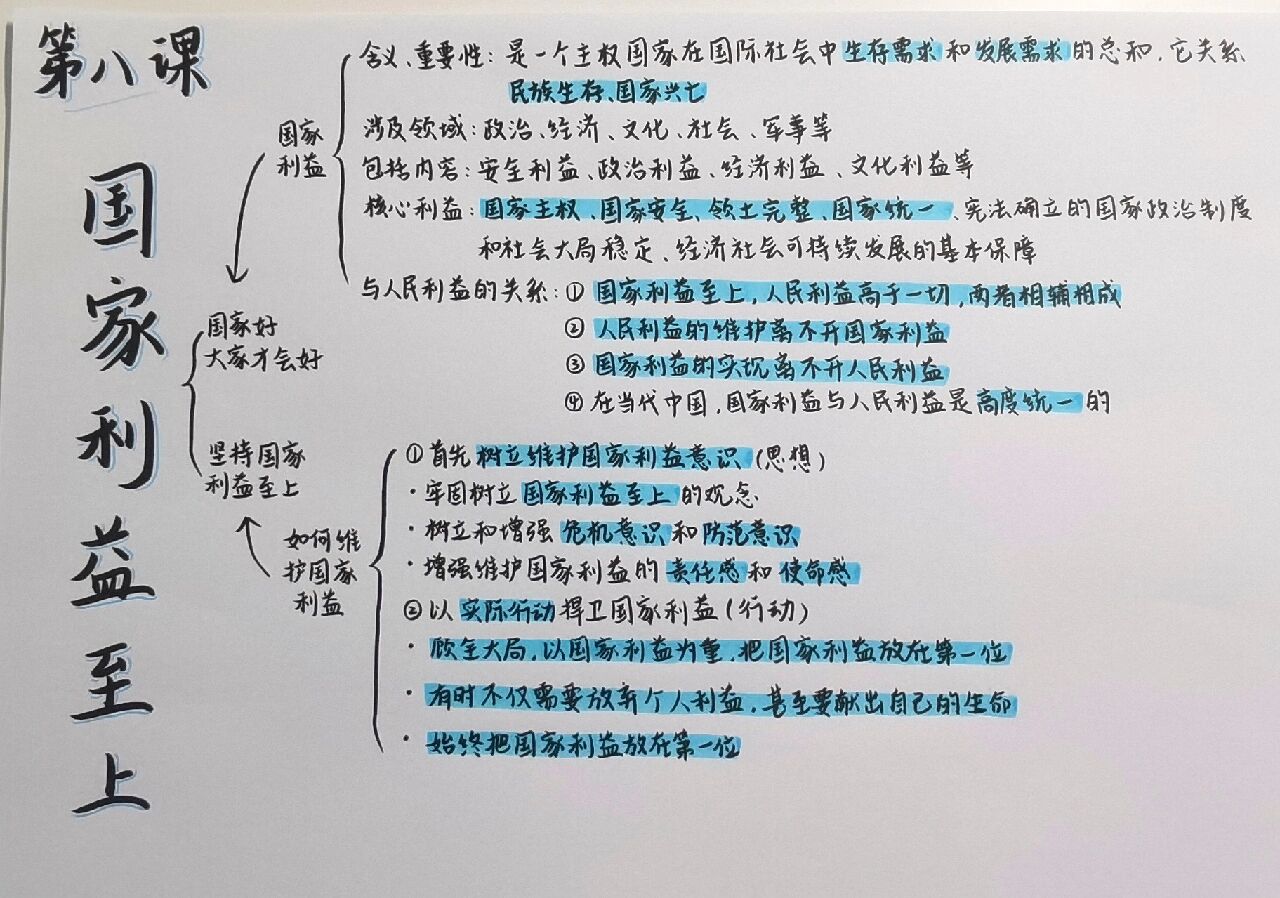 第八课
国家利益至上
国家好
大家才会好
国家
利益
含义、重要性：是一个主权国家在国际社会中生存需求和发展需求的总和，它关系
民族生存、国家兴亡
涉及领域：政治、经济、文化、社会、军事等
包括内容：安全利益、政治利益、经济利益、文化利益等
核心利益：国家主权、国家安全、领土完整、国家统一、宪法确立的国家政治制度
和社会大局稳定、经济社会可持续发展的基本保障
与人民利益的关系：① 国家利益至上，人民利益高于一切，两者相辅相成
② 人民利益的维护离不开国家利益
③ 国家利益的实现离不开人民利益
④ 在当代中国，国家利益与人民利益是高度统一的
坚持国家
利益至上
如何维
护国家
利益
①首先树立维护国家利益意识（思想）
·牢固树立国家利益至上的观念
·树立和增强危机意识和防范意识
·增强维护国家利益的责任感和使命感
②以实际行动捍卫国家利益（行动）
·顾全大局，以国家利益为重，把国家利益放在第一位
·有时不仅需要放弃个人利益，甚至要献出自己的生命
·始终把国家利益放在第一位